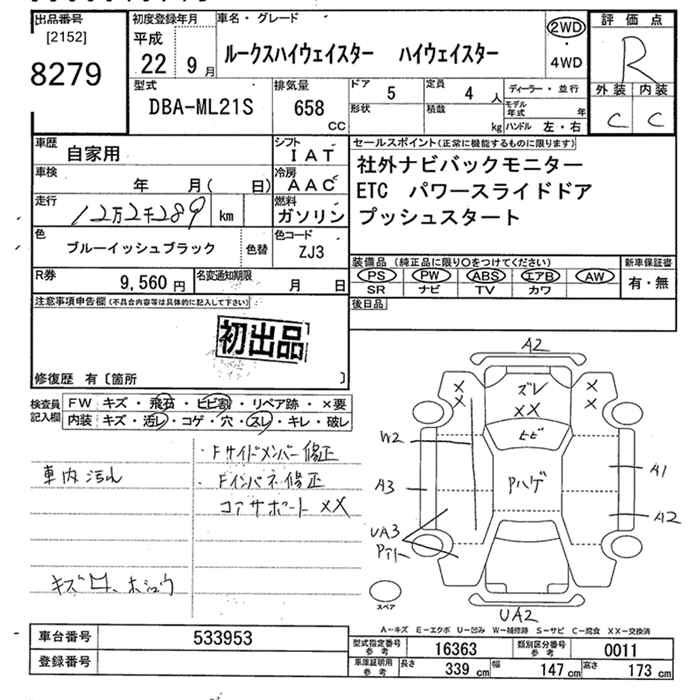 出品番号 初度登録年月 車名・グレード 2WD・4WD 評価点
[2152] 8279
平成 22 9月 ルークスハイウェイスター ハイウェイスター R
型式 DBA-ML21S 排気量 658 CC ドア 5 定員 4 人 ディーラー・並行
形状 積載 kg モデル年式 年 ハンドル 左・右
外装 内装
C C
車歴 自家用 シフト IAT
車検 年 月( 日) 冷房 AAC
走行 12万2千289 km 燃料 ガソリン
色 ブルーイッシュブラック 色替 色コード ZJ3
R券 9,560 円 名変通知期限 月 日
セールスポイント(正常に機能するものに限ります)
社外ナビバックモニター
ETC パワースライドドア
プッシュスタート
装備品 (純正品に限り○をつけてください) 新車保証書
PS PW ABS エアB AW 有・無
SR ナビ TV カワ
後日品
注意事項申告欄(不具合内容等は具体的に記入して下さい)
初出品
修復歴 有〔箇所 〕
検査員記入欄 FW キズ・飛石・ヒビ割・リペア跡・×要
内装 キズ・汚レ・コゲ・穴・スレ・キレ・破レ
・Fサイドメンバー修正
車内汚れ
・Fインパネ修正
コアサポート ××
キズ 凹、ホシュウ
A2
× × ズレ × ×
××
W2 ヒビ
A3 Pハゲ A1
A2
UA3
スペア
UA2
A-キズ E-エクボ U-凹み W-補修跡 S-サビ C-腐食 XX-交換済
車台番号 533953
登録番号
型式指定番号 参考 16363 類別区分番号 参考 0011
車庫証明用 参考 長さ 339 cm 幅 147 cm 高さ 173 cm